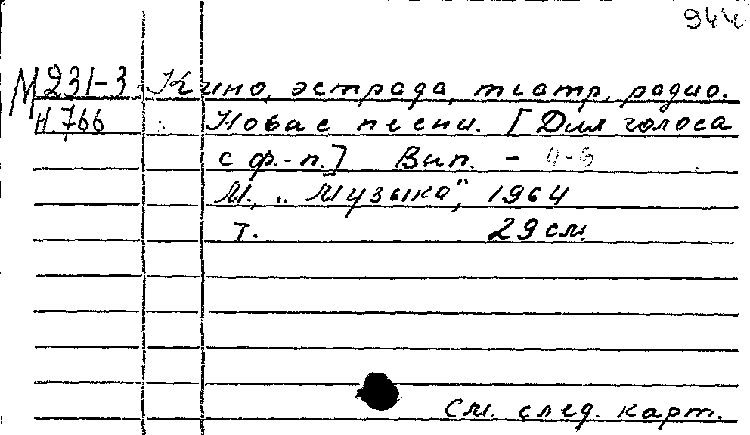 944
М 231-3 Кино, эстрада, театр, радио.
Н 766 Новые песни. [Для голоса
с ф.-п.] Вып. -
М., „Музыка", 1964
т. 29 см.
См. след. карт.